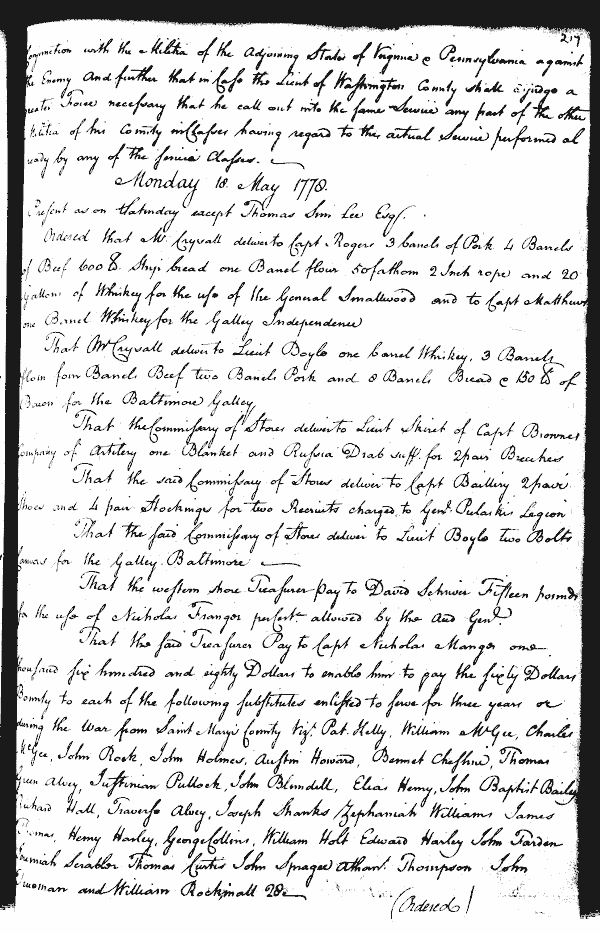 217
Conjunction with the Militia of the Adjoining States of Virginia & Pennsylvania against
the Enemy And further that in Case the Lieut of Washington County shall adjudge a
greater Force necessary that he call out into the same Service any part of the other
Militia of his County in Classes having regard to the actual Service performed al
ready by any of the Classes.
Monday 18. May 1778.
Present as on Saturday except Thomas Sim Lee Esqr.
Ordered that Mr Crysall deliver to Capt Rogers 3 barrels of Pork 4 Barrels
of Beef 600 lb. Ship bread one Barrel flour 50 fathom 2 Inch rope and 20
Gallons of Whiskey for the use of the General Smallwood and to Capt Matthews
one Barrel Whiskey for the Galley Independence
That Mr Crysall deliver to Lieut Boyle one barrel Whiskey, 3 Barrels
flour four Barrels Beef two Barrels Pork and 8 Barrels Bread & 150 lb of
Bacon for the Baltimore Galley
That the Commissary of Stores deliver to Lieut Skiret of Capt Brownes
Company of Artilery one Blanket and Russia Drab sufft. for 2 pair Breeches
That the said Commissary of Stores deliver to Capt Baillery 2 pair
Shoes and 4 pair Stockings for two Recruits charged to Genl. Pulaskis Legion
That the said Commissary of Stores deliver to Lieut Boyle two Bolts
Canvas for the Galley Baltimore
That the western shore Treasurer pay to David Schriver Fifteen pounds
for the use of Nicholas Franger per Certe. allowed by the Aud Genl.
That the said Treasurer Pay to Capt Nicholas Manger one
thousand six hundred and eighty Dollars to enable him to pay the sixty Dollars
Bounty to each of the following substitutes enlisted to serve for three years or
during the War from Saint Marys County Vizt. Pat. Kelly, William McGee, Charles
McGee, John Rock, John Holmes, Austin Howard, Bennet Cheshire, Thomas
Green Alvey, Justinian Pullock, John Blundell, Elias Henry, John Baptist Bailey
Richard Hall, Traverse Alvey, Joseph Shanks Zephaniah Williams James
Thomas, Henry Harley, George Collins, William Holt Edward Harley John Tarden
Jeremiah Scrabler Thomas Curtis John Sprager Athan. Thompson John
Trueman and William Rockmall 28
(Ordered)